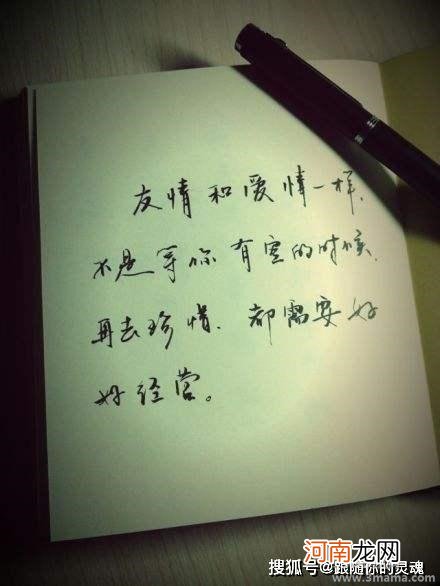 友情和爱情一样,
不是等你有空的时候,
再去珍惜.都需要好
好经营。
河南龙网
搜狐号@跟随你的灵魂
www.5mama.com